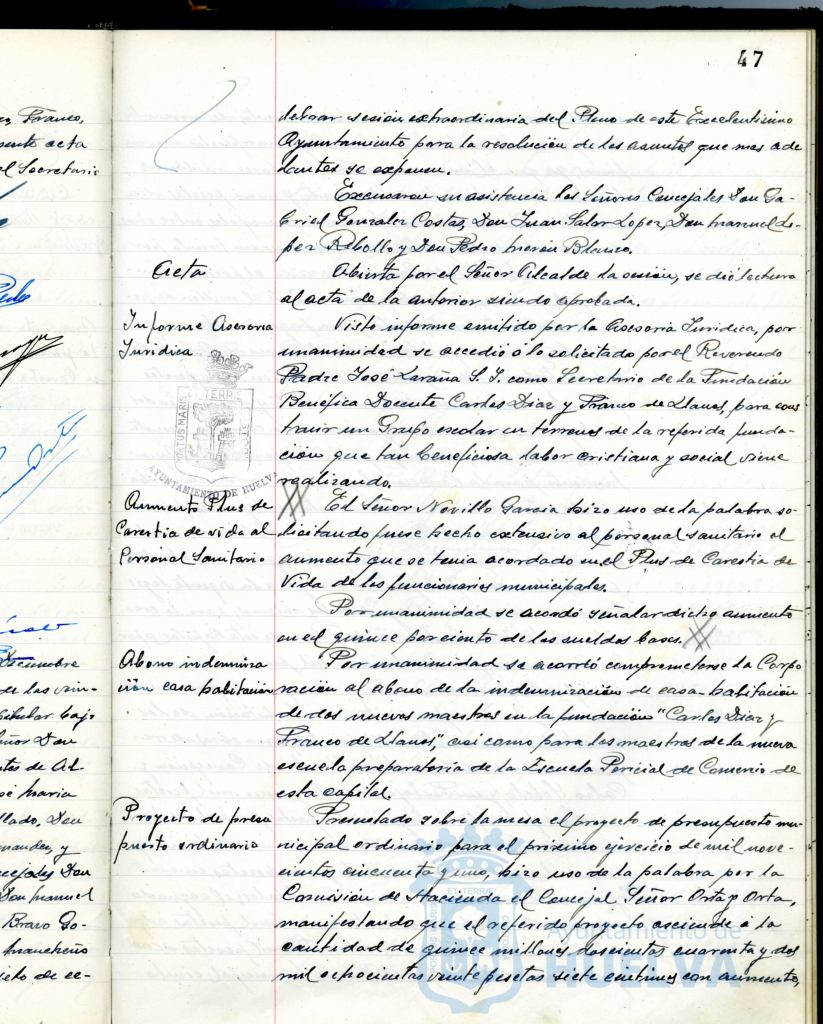 47
lebrar sesión extraordinaria del Pleno de este Excelentísimo
Ayuntamiento para la resolución de los asuntos que mas ade
lantes se exponen.
Excusaron su asistencia los Señores Concejales Don Ga-
briel Gonzalez Costas, Don Juan Salar Lopez, Don Manuel Lo-
pez Rebollo y Don Pedro Morón Blanco.
Acta
Abierta por el Señor Alcalde la sesión, se dió lectura
al acta de la anterior siendo aprobada.
Informe Asesoria
Juridica
Visto informe emitido por la Asesoria Juridica, por
unanimidad se accedió a lo solicitado por el Reverendo
Padre José Laraña S. J. como Secretario de la Fundación
Benéfica Docente Carlos Diaz y Franco de Llanos, para cons
truir un Grupo escolar en terrenos de la referida funda-
ción que tan beneficiosa labor cristiana y social viene
realizando.
PORTUS MARIS ET TERRE CUSTODIA
AYUNTAMIENTO DE HUELVA
Aumento Plus de
Carestia de vida al
Personal Sanitario
El Señor Novillo Garcia hizo uso de la palabra so-
licitando fuese hecho extensivo al personal sanitario el
aumento que se tenia acordado en el Plus de Carestia de
Vida de los funcionarios municipales.
Por unanimidad se acordó señalar dicho aumento
en el quince por ciento de los sueldos bases.
Abono indemniza
ción casa habitación
Por unanimidad se acordó comprometerse la Corpo
ración al abono de la indemnización de casa-habitación
de dos nuevos maestros en la fundación "Carlos Diaz y
Franco de Llanos", asi como para los maestros de la nueva
escuela preparatoria de la Escuela Pericial de Comercio de
esta capital.
Proyecto de presu
puesto ordinario
Presentado sobre la mesa el proyecto de presupuesto mu-
nicipal ordinario para el próximo ejercicio de mil nove-
cientos cincuenta y uno, hizo uso de la palabra por la
Comisión de Hacienda el Concejal Señor Orta y Orta,
manifestando que el referido proyecto asciende a la
cantidad de quince millones doscientas cuarenta y dos
mil ochocientas veinte pesetas siete centimos con aumento,
Ayuntamiento de
HUELVA
Franco,
acta
el Secretario
Diciembre
de las vein-
bajo
Señor Don
de Al-
José Maria
Don
y
Concejales Don
Don Manuel
Bravo Go-
Mancheño
de ce-